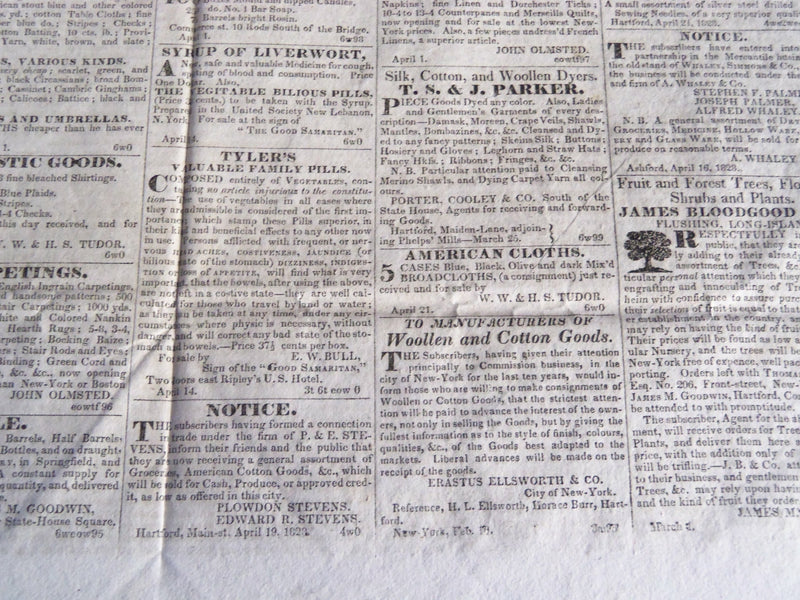 tican stout blue and other colored
yd.; cotton Table Cloths; fine
Stripes; Checks;
Cotton Batting, 10 cts. lb.;
Yarn, white, brown, and slate;
S, VARIOUS KINDS.
very cheap; scarlet, green, and
black Circassians;
Cassinet; Cambric Ginghams;
Calicoes; Battice; black and
AND UMBRELLAS.
THS cheaper than he has ever
1. 6w0
STIC GOODS.
fine bleached Shirtings.
Blue Plaids.
Stripes.
3-4 Checks.
this day received, and for
W. W. & H. S. TUDOR.
6w0
PETINGS.
English Ingrain Carpetings,
handsome patterns; 500
air Carpetings; 1000 yds.
hite and Colored Nankin
Hearth Rugs; 5-8, 3-4,
rpeting; Bocking Baize;
ers; Stair Rods and Eyes;
Binding; Green Cord and
&c. &c., now opening
han New-York or Boston
JOHN OLMSTED.
eowtf96
LE.
Barrels, Half Barrels
Bottles, and on draught,
in Springfield, and
a constant supply for
quantity, and delivered
M. GOODWIN,
State-House Square.
6weow95
do. No. 1 Bar Soap.
7 Barrels bright Rosin.
Conserve st. 10 Rods South of the Bridge.
April 1. 6w98
SYRUP OF LIVERWORT,
A New, safe and valuable Medicine for cough,
spitting of blood and consumption. Price
One Dollar. Also,
THE VEGITABLE BILIOUS PILLS,
(Price cents,) to be taken with the Syrup.
Prepared in the United Society New Lebanon,
N. York. For sale at the sign of
"THE GOOD SAMARITAN."
April 4. 6w0
TYLER'S
VALUABLE FAMILY PILLS.
COMPOSED entirely of VEGETABLES, containing
no article injurious to the constitution—The
use of vegetables in all cases where
they are admissible is considered of the first importance,
which stamp these Pills superior, in
their kind and beneficial effects to any other now
in use. Persons afflicted with frequent, or nervous
HEADACHES, COSTIVENESS, JAUNDICE (or
bile of the stomach) DIZZINESS, INDIGESTION
or loss of APPETITE, will find what is very
important, that the bowels, after using the above,
are not left in a costive state—they are well calculated
for those who travel by land or water;
as they can be taken at any time, under any circumstances
where physic is necessary, without
danger, and will correct any bad state of the stomach
and bowels.—Price 37½ cents per box.
For sale by E. W. BULL,
Sign of the "GOOD SAMARITAN,"
Two doors east Ripley's U. S. Hotel.
April 14. 3t 6t eow 0
NOTICE.
THE subscribers having formed a connection
in trade under the firm of P. & E. STEVENS,
inform their friends and the public that
they are now receiving a general assortment of
Groceries, American Cotton Goods, &c., which
will be sold for Cash, Produce, or approved credit,
as low as offered in this city.
PLOWDON STEVENS.
EDWARD R. STEVENS.
Hartford, Main-st. April 19. 1823. 4w0
Napkins; fine Linen and Dorchester Ticks;
10-4 to 13-4 Counterpanes and Marseilla Quilts,
now opening and for sale at the lowest New-
York prices. Also, a few pieces undress'd French
Linens, a superior article.
JOHN OLMSTED.
April 1. eowtf97
Silk, Cotton, and Woollen Dyers.
T. S. & J. PARKER.
PIECE Goods Dyed any color. Also, Ladies
and Gentlemen's Garments of every description—Damask,
Moreen, Crape Veils, Shawls,
Mantles, Bombazines, &c. &c. Cleansed and Dyed
to any fancy patterns; Skeins Silk; Buttons;
Hosiery and Gloves; Leghorn and Straw Hats;
Fancy Hkfs.; Ribbons; Fringes, &c. &c.
N. B. Particular attention paid to Cleansing
Merino Shawls, and Dying Carpet Yarn all colours.
PORTER, COOLEY & CO. South of the
State House, Agents for receiving and forwarding
Goods.
Hartford, Maiden-Lane, adjoining
Phelps' Mills—March 25. 6w99
AMERICAN CLOTHS.
5 CASES Blue, Black, Olive and dark Mix'd
BROADCLOTHS, (a consignment) just received
and for sale by
W. W. & H. S. TUDOR.
April 21. 6w0
TO MANUFACTURERS OF
Woollen and Cotton Goods.
THE Subscribers, having given their attention
principally to Commission business, in the
city of New-York for the last ten years, would inform
those who are willing to make consignments
of Woollen or Cotton Goods, that the strictest attention
will be paid to advance the interest of the owners,
not only in selling the Goods, but by giving the
fullest information as to the style of finish, colours,
qualities, &c., of the Goods best adapted to the
markets. Liberal advances will be made on the
receipt of the goods.
ERASTUS ELLSWORTH & CO.
City of New-York.
Reference, H. L. Ellsworth, Horace Burr, Hartford.
New-York, Feb. 19.
A small assortment of silver steel drilled
Sewing Needles, of a very superior quality
Hartford, April 21, 1823.
NOTICE.
THE subscribers have entered into
partnership in the Mercantile business
the old stand of WHALEY, SIMMONS & Co.
the business will be conducted under the
and firm of A. WHALEY & Co.
STEPHEN F. PALMER
JOSEPH PALMER,
ALFRED WHALEY
N. B. A general assortment of DRY
GROCERIES, MEDICINE, HOLLOW WARE,
ERY and GLASS WARE, will be sold for
produce on reasonable terms.
A. WHALEY
Ashford, April 16, 1823.
Fruit and Forest Trees, Flo
Shrubs and Plants.
JAMES BLOODGOOD
FLUSHING, LONG-ISLAND
RESPECTFULLY
public, that they are
ly adding to their already
assortment of Trees, &
ticular personal attention which the
engrafting and innoculating of Tre
heim with confidence to assure purc
their selections of fruit is equal to tha
er establishment in the country, as
may rely on having the kind of fruit
Their prices will be found as low a
lar Nursery, and the trees will be
New-York free of expence, well pac
porting. Orders left with THOMAS
Esq. No. 206, Front-street, New-
JAMES M. GOODWIN, Hartford, Con
be attended with promptitude.
The subscriber, Agent for the ab
ment, will receive orders for Tre
Plants, and deliver them here a
price, with the addition only of
will be trifling.—J. B. & Co. att
to their business, and gentlemen
Trees, &c. may rely upon havin
and the kind of fruit they order
JAMES M.
March 3.